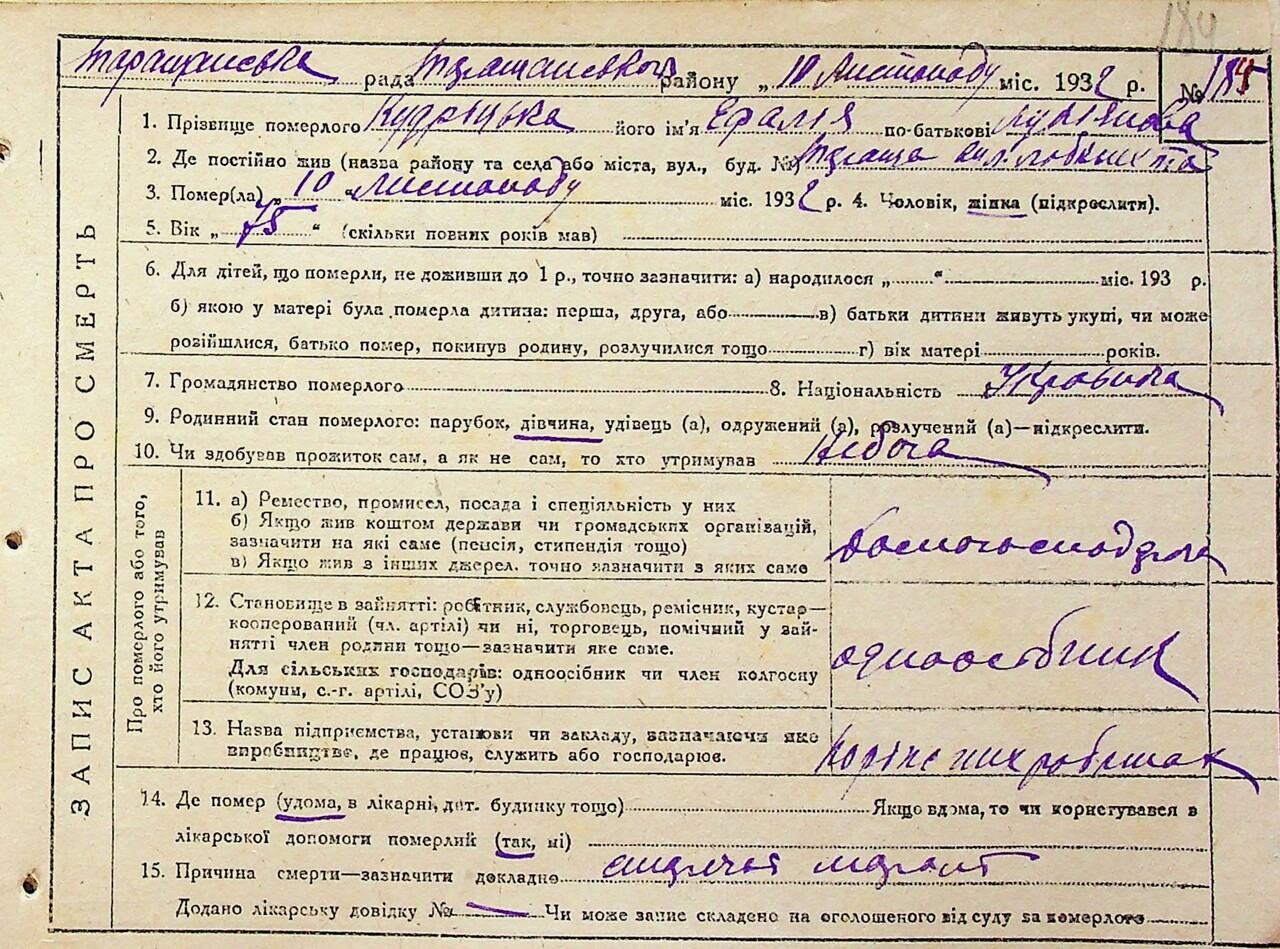 184
Таращанська рада Таращанського району „ 10 Листопаду міс. 1932 р. № 185
ЗАПИС АКТА ПРО СМЕРТЬ
1. Прізвище померлого Кудріцька його ім'я по-батькові
2. Де постійно жив (назва району та села або міста, вул., буд. №) Тараща вул.
3. Помер(ла) „ 10 “ Листопаду міс. 1932 р. 4. Чоловік, жінка (підкреслити).
5. Вік „ 75 “ (скільки повних років мав)
6. Для дітей, що померли, не доживши до 1 р., точно зазначити: а) народилося „ “ міс. 193 р.
б) якою у матері була померла дитина: перша, друга, або в) батьки дитини живуть укупі, чи може
розійшлися, батько помер, покинув родину, розлучилися тощо г) вік матері років.
7. Громадянство померлого 8. Національність Українка
9. Родинний стан померлого: парубок, дівчина, удівець (а), одружений (а), розлучений (а)—підкреслити.
10. Чи здобував прожиток сам, а як не сам, то хто утримував Небога
Про померлого або того,
хто його утримував
11. а) Ремество, промисел, посада і спеціяльність у них
б) Якщо жив коштом держави чи громадських організацій,
зазначити на які саме (пенсія, стипендія тощо)
в) Якщо жив з інших джерел. точно зазначити з яких саме
домогосподарка
12. Становище в зайнятті: робітник, службовець, ремісник, кустар—
кооперований (чл. артілі) чи ні, торговець, помічний у зай-
нятті член родини тощо—зазначити яке саме.
Для сільських господарів: одноосібник чи член колгоспу
(комуни, с.-г. артілі, СОЗ'у)
одноосібник
13. Назва підприємства, установи чи закладу, зазначаючи яке
виробництво, де працює, служить або господарює.
14. Де помер (удома, в лікарні, дит. будинку тощо) Якщо вдома, то чи користувався в
лікарської допомоги померлий (так, ні)
15. Причина смерти—зазначити докладно
Додано лікарську довідку № — Чи може запис складено на оголошеного від суду за померлого